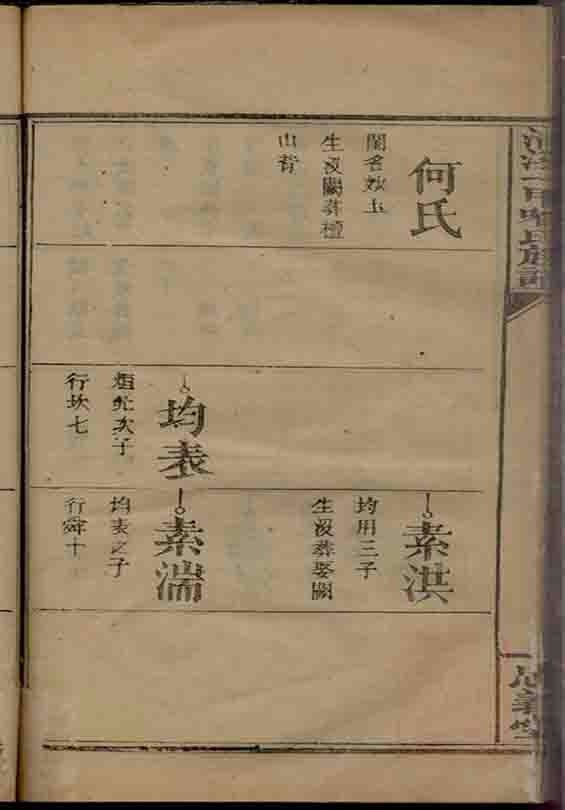 何氏
閨名妙玉
生沒闕葬檀
山背
均表
烜允次子
行坎七
素洪
均用三子
生沒葬娶闕
素湍
均表之子
行舜十